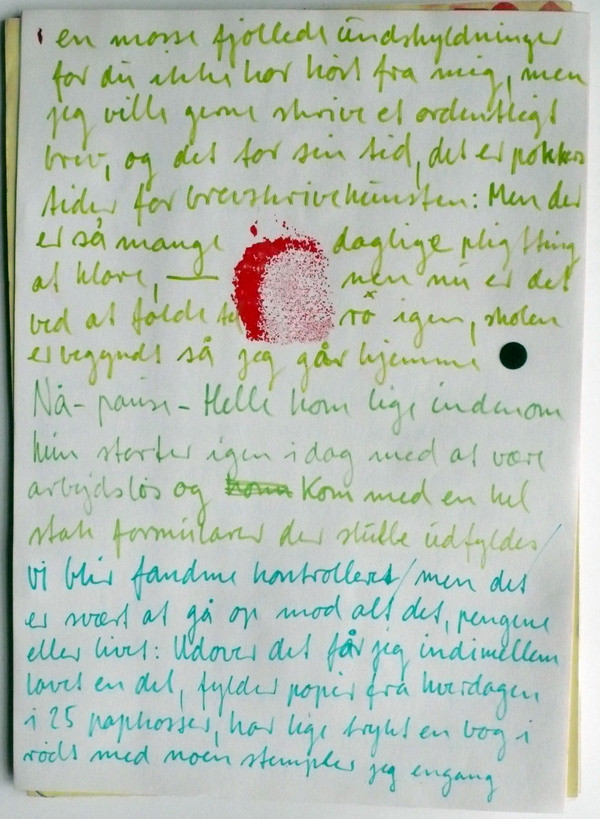 en masse fjollede undskyldninger
for du ikke har hørt fra mig, men
jeg ville gerne skrive et ordentligt
brev, og det tar sin tid, det er pokkers
tider for brevskrivekunsten: Men der
er så mange daglige pligtting
at klare, — men nu er det
ved at falde ro igen, skolen
er begyndt så jeg går hjemme
Nå - pause - Helle kom lige indenom
hun starter igen i dag med at være
arbejdsløs og kom med en hel
stak formularer der skulle udfyldes/
vi blir fandme kontrolleret/men det
er svært at gå op mod alt det, pengene
eller livet: Udover det får jeg indimellem
lavet en del, fylder papir fra hverdagen
i 25 papkasser, har lige trykt en bog i
rødt med noen stempler jeg engang